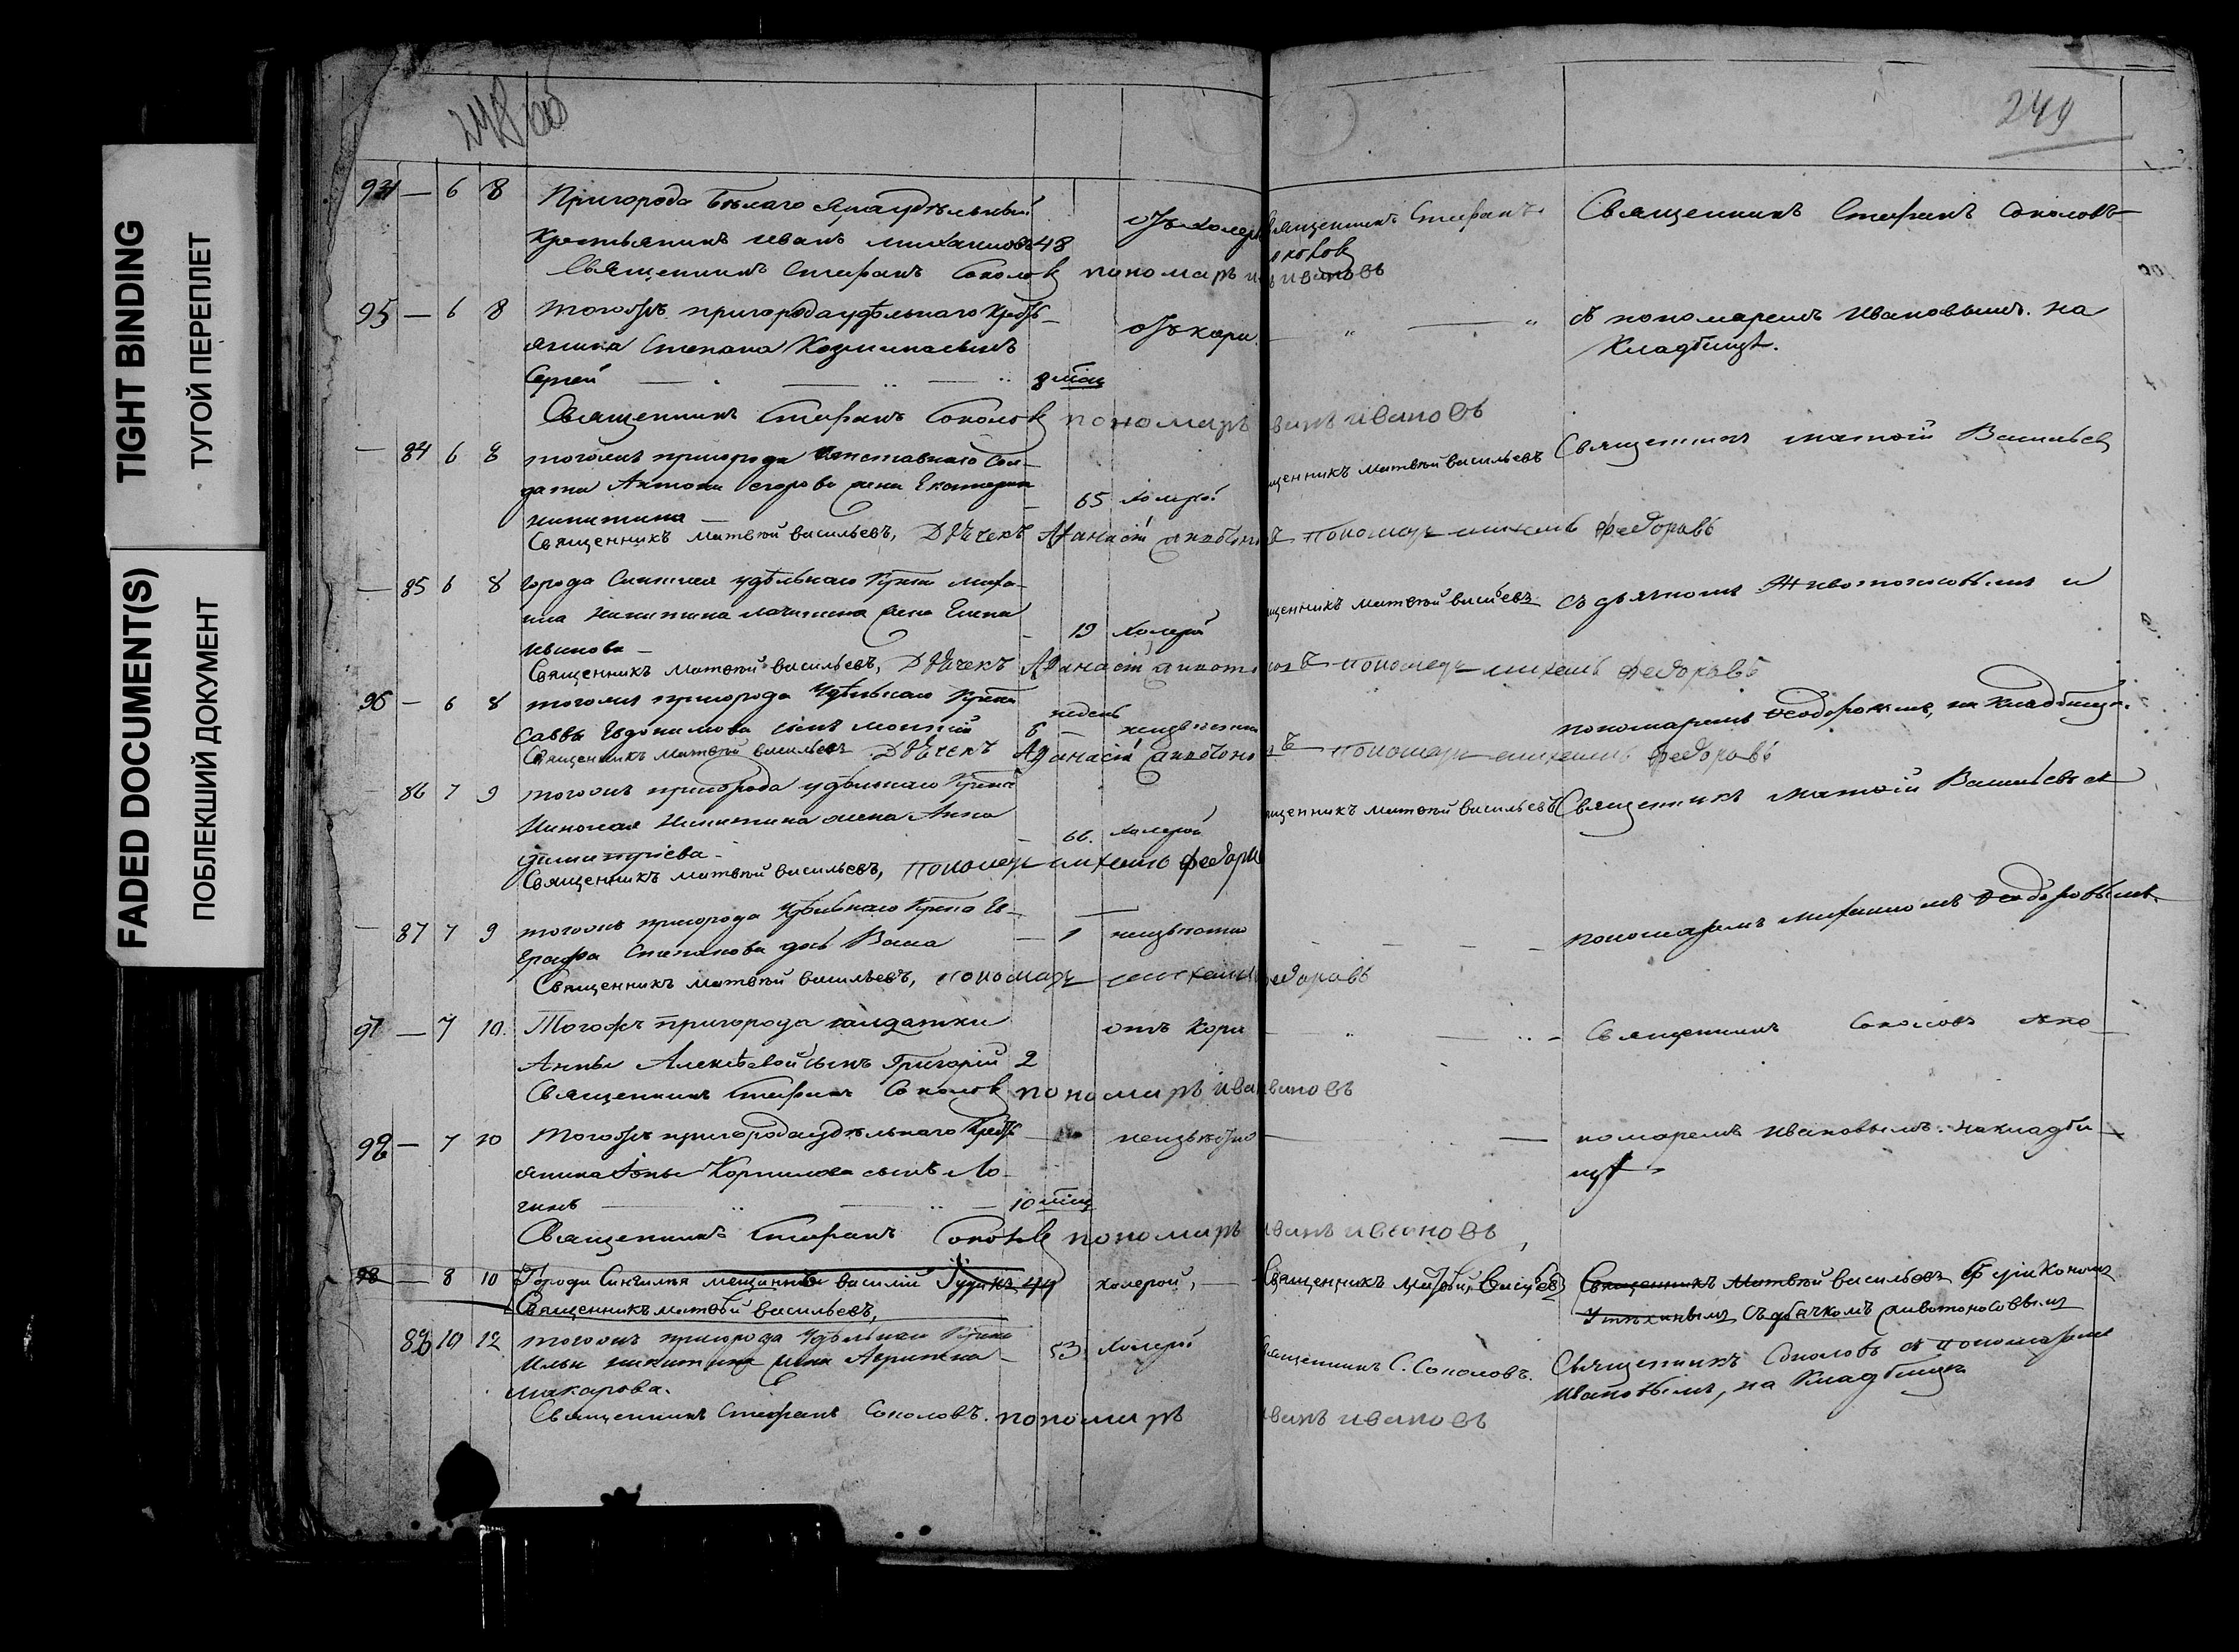 TIGHT BINDING
ТУГОЙ ПЕРЕПЛЕТ
FADED DOCUMENT(S)
ПОБЛЕКШИЙ ДОКУМЕНТ
249
94 — 6 8 Пригорода Бѣлаго Яра удѣльный
крестьянинъ Иванъ Михаиловъ 48 отъ холеры Священникъ Стефанъ Соколовъ Священникъ Стефанъ Соколовъ
Священникъ Стефанъ Соколовъ пономарь Ивановъ
95 — 6 8 Тогожъ пригорода удѣльнаго крестьянина Степана Козмина сынъ отъ кори съ пономаремъ Ивановымъ. на
Сергей 8 мѣсяц кладбищѣ.
Священникъ Стефанъ Соколовъ пономарь Иванъ Ивановъ
— 84 6 8 тогожъ пригорода отставнаго Сол-
дата Антона Егорова жена Екатерина 65 холерой Священникъ Матвѣй Васильевъ Священникъ Матѳій Васильев
Никитина
Священникъ Матвѣй Васильевъ, Дьячекъ Афанасій Животоносовъ Пономарь Михаилъ Федоровъ
— 85 6 8 города Сингилея удѣльнаго Михаи-
ила Никитина жена Елена 19 холерой Священникъ Матвѣй Васильевъ съ дьячкомъ Животоносовымъ и
Иванова —
Священникъ Матвѣй Васильевъ, Дьячекъ Афанасій Животоносовъ Пономарь Михаилъ Федоровъ
96 — 6 8 тогожъ пригорода Удѣльнаго
Саввы Евдокимова сынъ Моисей 6 недель неизвѣстно пономаремъ Ѳеодоровымъ, на кладбищѣ.
Священникъ Матвѣй Васильевъ Дьячекъ Афанасій Животоносовъ Пономарь Михаилъ Федоровъ
— 86 7 9 тогожъ пригорода удѣльнаго
Николая Никитина жена Анна 66. холерой Священникъ Матвѣй Васильевъ Священникъ Матѳій Васильевъ съ
Димитріева —
Священникъ Матвѣй Васильевъ, Пономарь Михаилъ Федоровъ
— 87 7 9 тогожъ пригорода Удѣльнаго Ев-
графа Степанова дочь 1 неизвѣстно пономаремъ Михаиломъ Ѳеодоровымъ
Священникъ Матвѣй Васильевъ, Пономарь Михаилъ Федоровъ
97 — 7 10. Тогожъ пригорода солдатки отъ кори Священникъ Соколовъ съ по-
Анны Алексѣевой сынъ Григорій 2
Священникъ Стефанъ Соколовъ пономарь Иванъ Ивановъ
98 — 7 10 Тогожъ пригорода удѣльнаго крестьянина неизвѣстно номаремъ Ивановымъ. на кладби-
Іоны Корнилова сынъ Ло- щѣ
гинъ 10 мѣсяц
Священникъ Стефанъ Соколовъ пономарь Иванъ Ивановъ
98 — 8 10 Города Сингилея мещанинъ Василій 49 холерой, Священникъ Матвѣй Васильевъ Священникъ Матвѣй Васильевъ
Священникъ Матвѣй Васильевъ, съ дьячкомъ Животоносовымъ
88 10 12 тогожъ пригорода Удѣльнаго
Ильи Никитина жена 53 холерой Священникъ С. Соколовъ. Священникъ Соколовъ съ пономаремъ
Макарова. Ивановымъ, на кладбищѣ
Священникъ Стефанъ Соколовъ. пономарь Иванъ Ивановъ